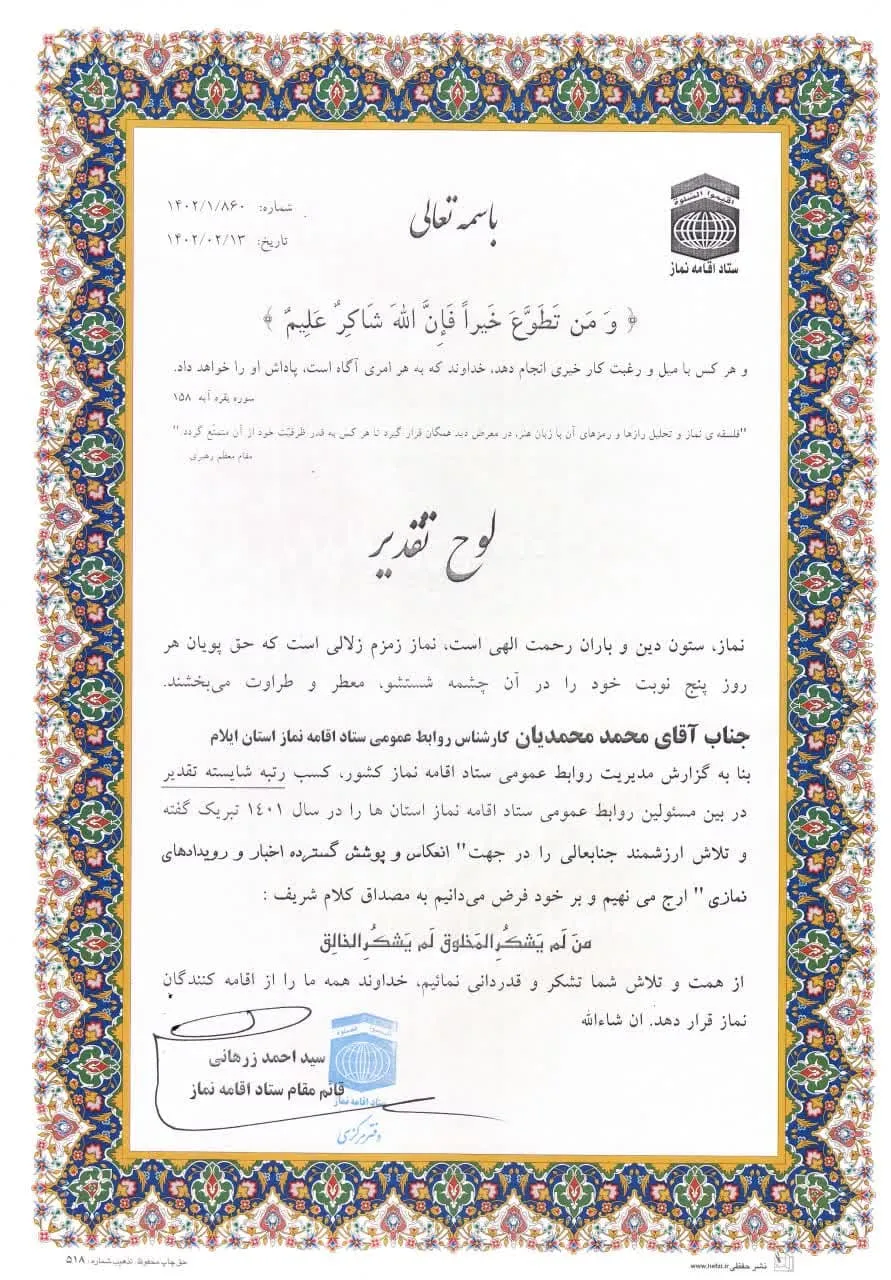 باسمه تعالی
شماره: ۱۴۰۲/۱/۸۶۰
تاریخ: ۱۴۰۲/۰۲/۱۳
اقیموا الصلوة
ستاد اقامه نماز
﴿ وَ مَن تَطَوَّعَ خَیراً فَإِنَّ اللهَ شَاکِرٌ عَلِیمٌ ﴾
و هر کس با میل و رغبت کار خیری انجام دهد، خداوند که به هر امری آگاه است، پاداش او را خواهد داد.
سوره بقره آیه ۱۵۸
"فلسفه ی نماز و تحلیل رازها و رمزهای آن با زبان هنر، در معرض دید همگان قرار گیرد تا هر کس به قدر ظرفیّت خود از آن متمتّع گردد "
مقام معظم رهبری
لوح تقدیر
نماز، ستون دین و باران رحمت الهی است، نماز زمزم زلالی است که حق پویان هر
روز پنج نوبت خود را در آن چشمه شستشو، معطر و طراوت می‌بخشند.
جناب آقای محمد محمدیان کارشناس روابط عمومی ستاد اقامه نماز استان ایلام
بنا به گزارش مدیریت روابط عمومی ستاد اقامه نماز کشور، کسب رتبه شایسته تقدیر
در بین مسئولین روابط عمومی ستاد اقامه نماز استان ها را در سال ۱٤۰۱ تبریک گفته
و تلاش ارزشمند جنابعالی را در جهت" انعکاس و پوشش گسترده اخبار و رویدادهای
نمازی " ارج می نهیم و بر خود فرض می‌دانیم به مصداق کلام شریف :
مَن لَم یَشکُرِالمَخلوق لَم یَشکُرِالخالِق
از همت و تلاش شما تشکر و قدردانی نمائیم، خداوند همه ما را از اقامه کنندگان
نماز قرار دهد. ان شاءالله
سید احمد زرهانی
قائم مقام ستاد اقامه نماز
ستاد اقامه نماز
دفتر مرکزی
نشر حفظی
حق چاپ محفوظ. تذهیب شماره: ۵۱۸